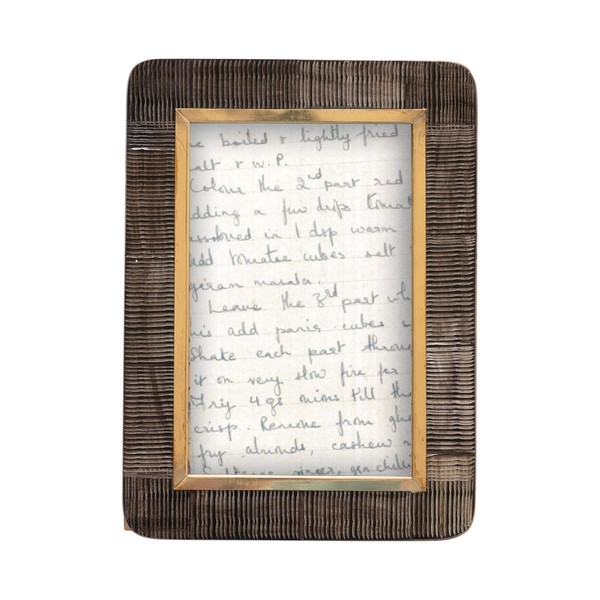 e boiled & lightly fried
alt & W.P.
Colour the 2nd part red
dding a few drops tomat
ssolved in 1 dsp warm
add tomatoe cubes salt
giram masala.
Leave the 3rd part wh
his add panir cubes
Shake each part throu
it on very slow fire for
Fry 4 gs onions till th
crisp. Remove from ghe
fry almonds, cashew n
ginger, gr. chili